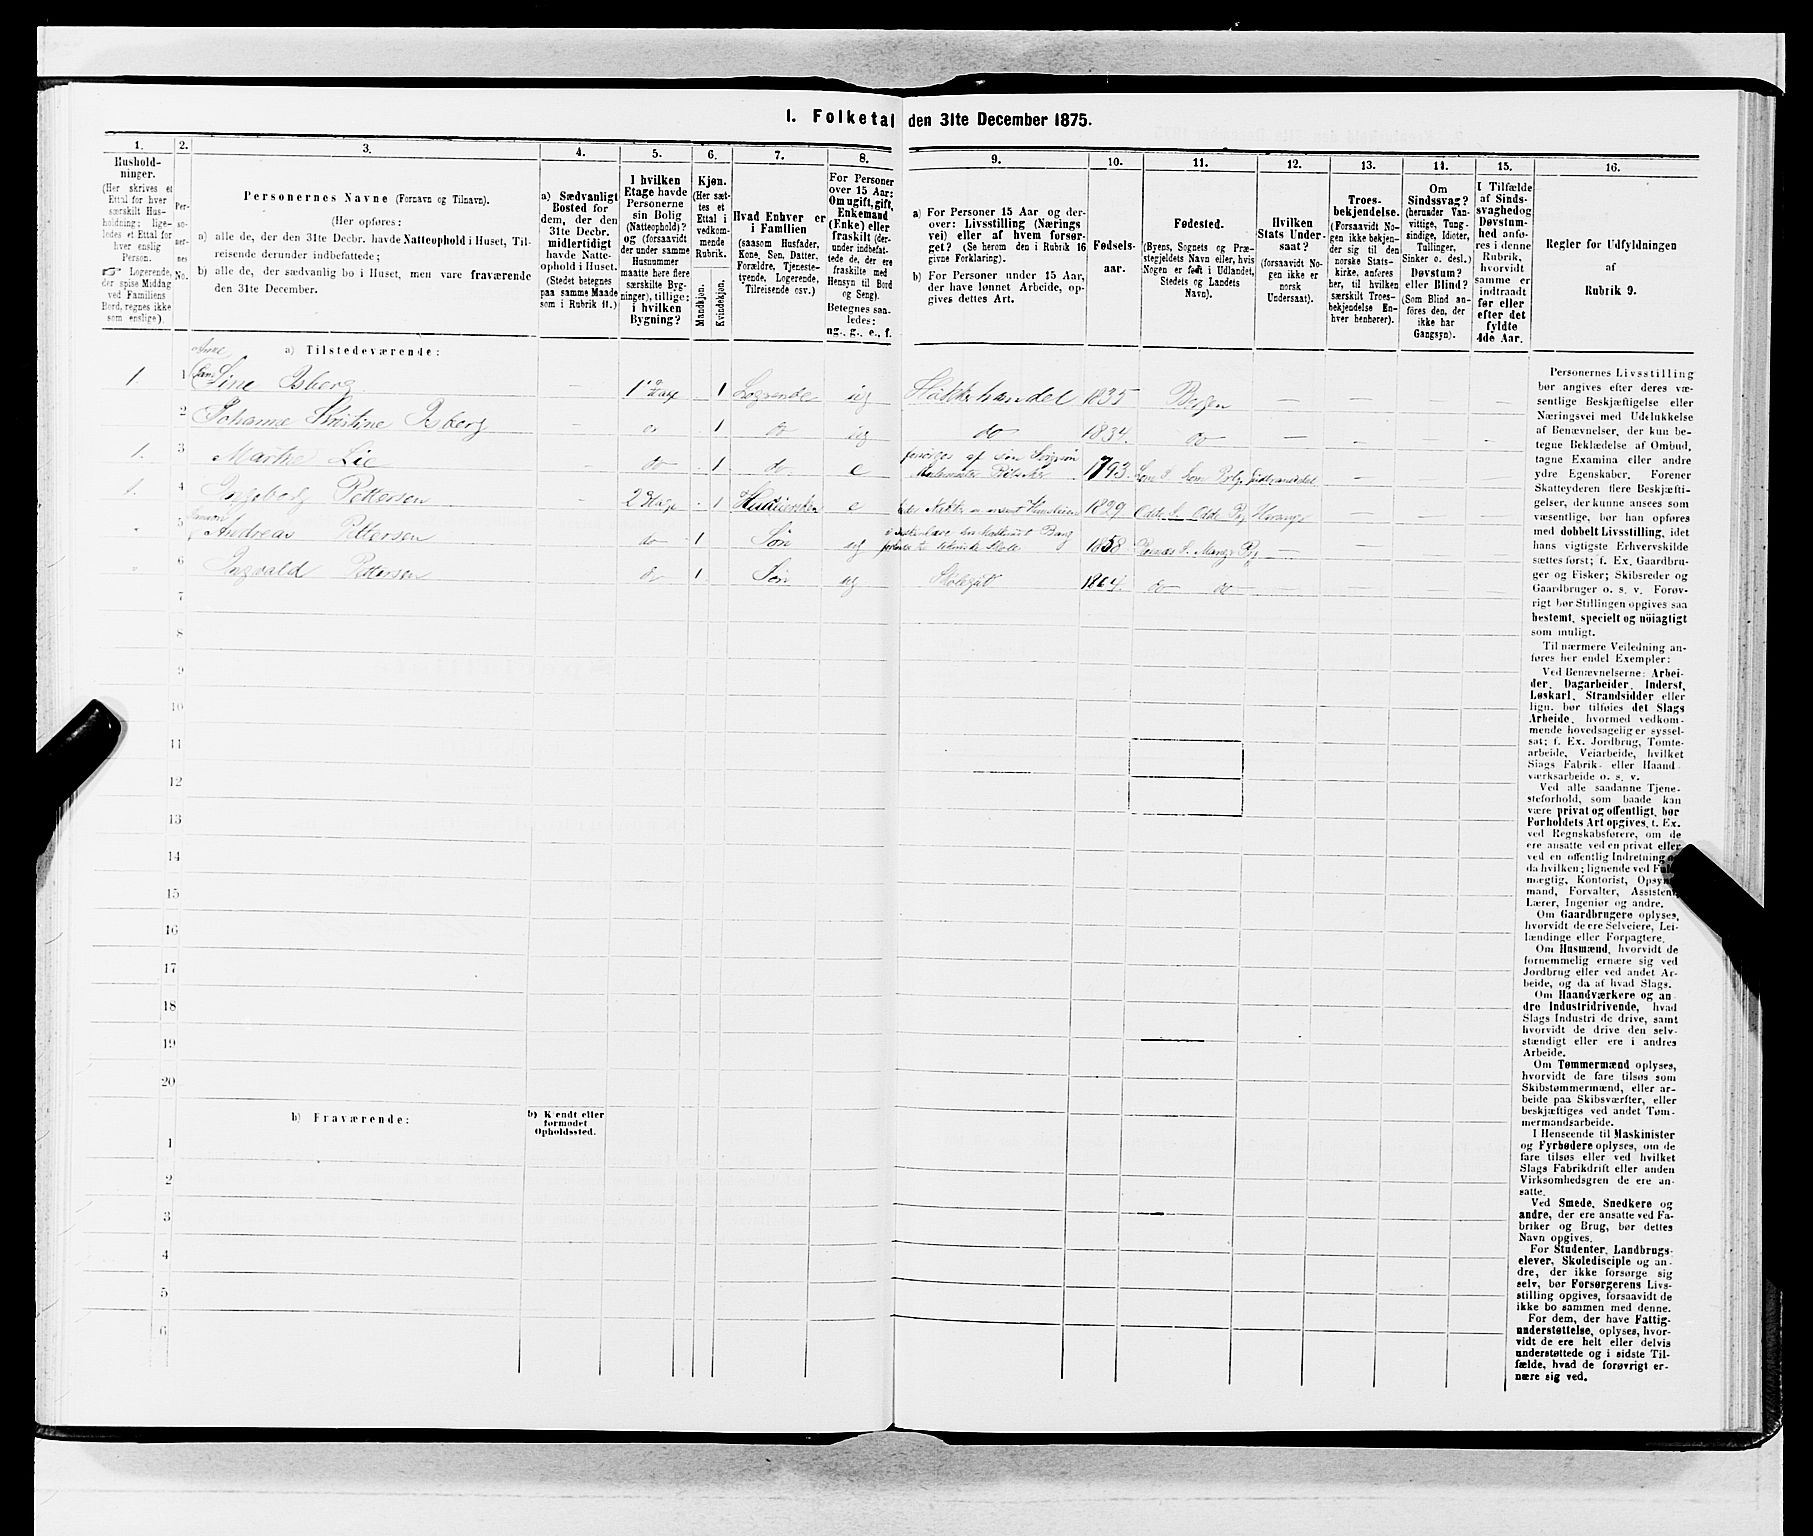 1. Folketal den 31te December 1875.
1.
Hushold-
ninger.
(Her skrives et
Ettal for hver
særskilt Hus-
holdning; lige-
ledes et Ettal for
hver enslig
Person.
☞ Logerende,
der spise Middag
ved Familiens
Bord, regnes ikke
som enslige).
2.
Per-
so-
ner-
nes
No.
3.
Personernes Navne (Fornavn og Tilnavn).
(Her opføres:
a) alle de, der den 31te Decbr. havde Natteophold i Huset, Til-
reisende derunder indbefattede;
b) alle de, der sædvanlig bo i Huset, men vare fraværende
den 31te December.
4.
a) Sædvanligt
Bosted for
dem, der den
31te Decbr.
midlertidigt
havde Natte-
ophold i Huset.
(Stedet betegnes
paa samme Maade
som i Rubrik 11.)
5.
I hvilken
Etage havde
Personerne
sin Bolig
(Natteophold)?
og (forsaavidt
der under samme
Husnummer
maatte høre flere
særskilte Byg-
ninger), tillige:
i hvilken
Bygning?
6.
Kjøn.
(Her sæt-
tes et
Ettal i
vedkom-
mende
Rubrik.
Mandkjøn.
Kvindekjøn.
7.
Hvad Enhver er
i Familien
(saasom Husfader,
Kone, Søn, Datter,
Forældre, Tjeneste-
tyende, Logerende,
Tilreisende osv.)
8.
For Personer
over 15 Aar:
Om ugift, gift,
Enkemand
(Enke) eller
fraskilt (der-
under indbefat-
tede de, der ere
fraskilte med
Hensyn til Bord
og Seng).
Betegnes saa-
ledes:
ug., g., e., f.
9.
a) For Personer 15 Aar og der-
over: Livsstilling (Nærings
vei) eller af hvem forsør-
get? (Se herom den i Rubrik 16
givne Forklaring).
b) For Personer under 15 Aar,
der have lønnet Arbeide, op-
gives dettes Art.
10.
Fødsels-
aar.
11.
Fødested.
(Byens, Sognets og Præ-
stegjeldets Navn eller, hvis
Nogen er født i Udlandet,
Stedets og Landets
Navn).
12.
Hvilken
Stats Under-
saat?
(forsaavidt No-
gen ikke er
norsk
Undersaat).
13.
Troes-
bekjendelse.
(Forsaavidt No-
gen ikke bekjen-
der sig til den
norske Stats-
kirke, anføres
her, til hvilken
særskilt Troes-
bekjendelse En-
hver henhører).
14.
Om
Sindssvag?
(herunder Van-
vittige, Tung-
sindige, Idioter,
Tullinger,
Sinker o. desl.)
Døvstum?
eller Blind?
(Som Blind an-
føres den, der
ikke har
Gangsyn).
15.
I Tilfælde
af Sinds-
svaghed og
Døvstum-
hed anfø-
res i denne
Rubrik,
hvorvidt
samme er
indtraadt
før eller
efter det
fyldte
4de Aar.
16.
Regler for Udfyldningen
af
Rubrik 9.
a) Tilstedeværende:
Anne
1. 1 Sine Isberg – 1 Etage 1 Logerende ug Høkkerhandel 1835 Bergen – – – –
2 Johanne Kristine Isberg – do 1 do ug do 1834. do – – – –
1. 3 Marthe Lie – do 1 do e forsørges af sin 1793
1. 4 Ingeborg Pettersen – 2 Etage 1 e 1829
5 Andreas Pettersen do 1 Søn ug 1858 Manger
6 Ingvald Pettersen do 1 Søn ug 1864. do do – – – –
7
8
9
10
11
12
13
14
15
16
17
18
19
20
b) Fraværende:
b) Kjendt eller
formodet
Opholdssted.
1
2
3
4
5
6
Personernes Livsstilling
bør angives efter deres væ-
sentlige Beskjæftigelse eller
Næringsvei med Udelukkelse
af Benævnelser, der kun be-
tegne Beklædelse af Ombud,
tagne Examina eller andre
ydre Egenskaber. Forener
Skatteyderen flere Beskjæfti-
gelser, der kunne ansees som
væsentlige, bør han opføres
med dobbelt Livsstilling, idet
hans vigtigste Erhvervskilde
sættes først; f. Ex. Gaardbru-
ger og Fisker; Skibsreder og
Gaardbruger o. s. v. Forøv-
rigt bør Stillingen opgives saa
bestemt, specielt og nøiagtigt
som muligt.
Til nærmere Veiledning an-
føres her endel Exempler:
Ved Benævnelserne: Arbei-
der, Dagarbeider, Inderst,
Løskarl, Strandsidder eller
lign. bør tilføies det Slags
Arbeide, hvormed vedkom-
mende hovedsagelig er syssel-
sat; f. Ex. Jordbrug, Tomte-
arbeide, Veiarbeide, hvilket
Slags Fabrik- eller Haand
værksarbeide o. s. v.
Ved alle saadanne Tjene-
steforhold, som baade kan
være privat og offentligt, bør
Forholdets Art opgives, t. Ex.
ved Regnskabsførere, om de
ere ansatte ved en privat eller
ved en offentlig Indretning
da hvilken; lignende ved
mægtig, Kontorist,
mand, Forvalter,
Lærer, Ingeniør og andre.
Om Gaardbrugere oplyses,
hvorvidt de ere Selveiere, Lei-
lændinge eller Forpagtere.
Om Husmænd, hvorvidt de
fornemmelig ernære sig ved
Jordbrug eller ved andet Ar-
beide, og da af hvad Slags.
Om Haandværkere og an
dre Industridrivende, hvad
Slags Industri de drive, samt
hvorvidt de drive den selv-
stændigt eller ere i andres
Arbeide.
Om Tømmermænd oplyses,
hvorvidt de fare tilsøs som
Skibstømmermænd, eller ar-
beide paa Skibsværfter, eller
beskjæftiges ved andet Tøm-
mermandsarbeide.
I Henseende til Maskinister
og Fyrbødere oplyses, om de
fare tilsøs eller ved hvilket
Slags Fabrikdrift eller anden
Virksomhedsgren de ere an-
satte.
Ved Smede, Snedkere og
andre, der ere ansatte ved Fa-
briker og Brug, bør dettes
Navn opgives.
For Studenter, Landbrugs-
elever, Skoledisciple og an-
dre, der ikke forsørge sig
selv, bør Forsørgerens Livs-
stilling opgives, forsaavidt de
ikke bo sammen med denne.
For dem, der have Fattig-
understøttelse, oplyses, hvor-
vidt de ere helt eller delvis
understøttede og i sidste Til-
fælde, hvad de forøvrigt er-
nære sig ved.